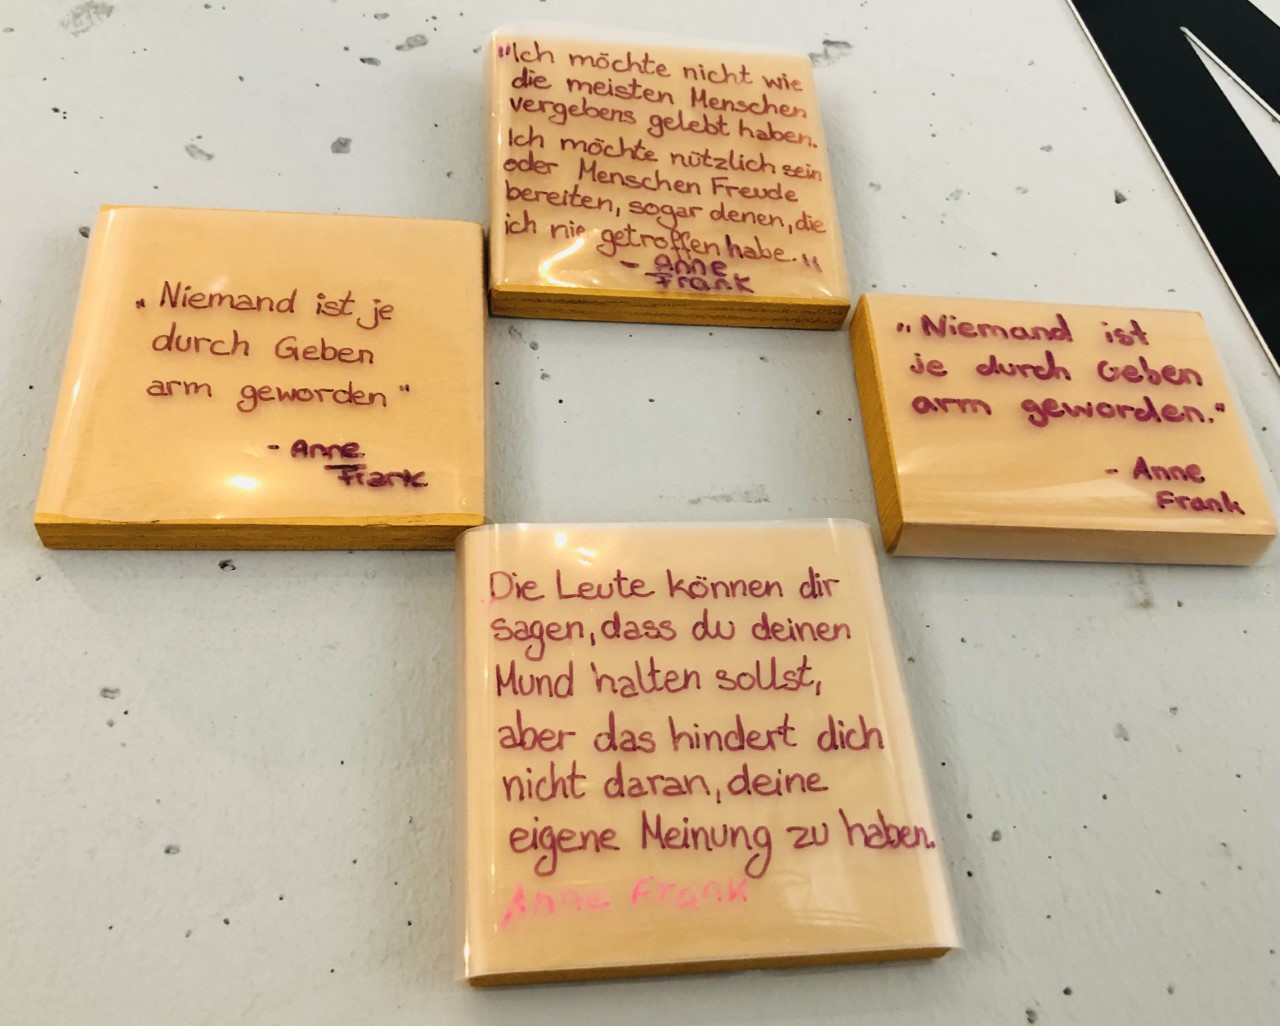 "Ich möchte nicht wie
die meisten Menschen
vergebens gelebt haben.
Ich möchte nützlich sein
oder Menschen Freude
bereiten, sogar denen, die
ich nie getroffen habe."
- Anne
Frank
„Niemand ist je
durch Geben
arm geworden"
- Anne
Frank
„Niemand ist
je durch Geben
arm geworden."
- Anne
Frank
Die Leute können dir
sagen, dass du deinen
Mund halten sollst,
aber das hindert dich
nicht daran, deine
eigene Meinung zu haben.
Anne Frank